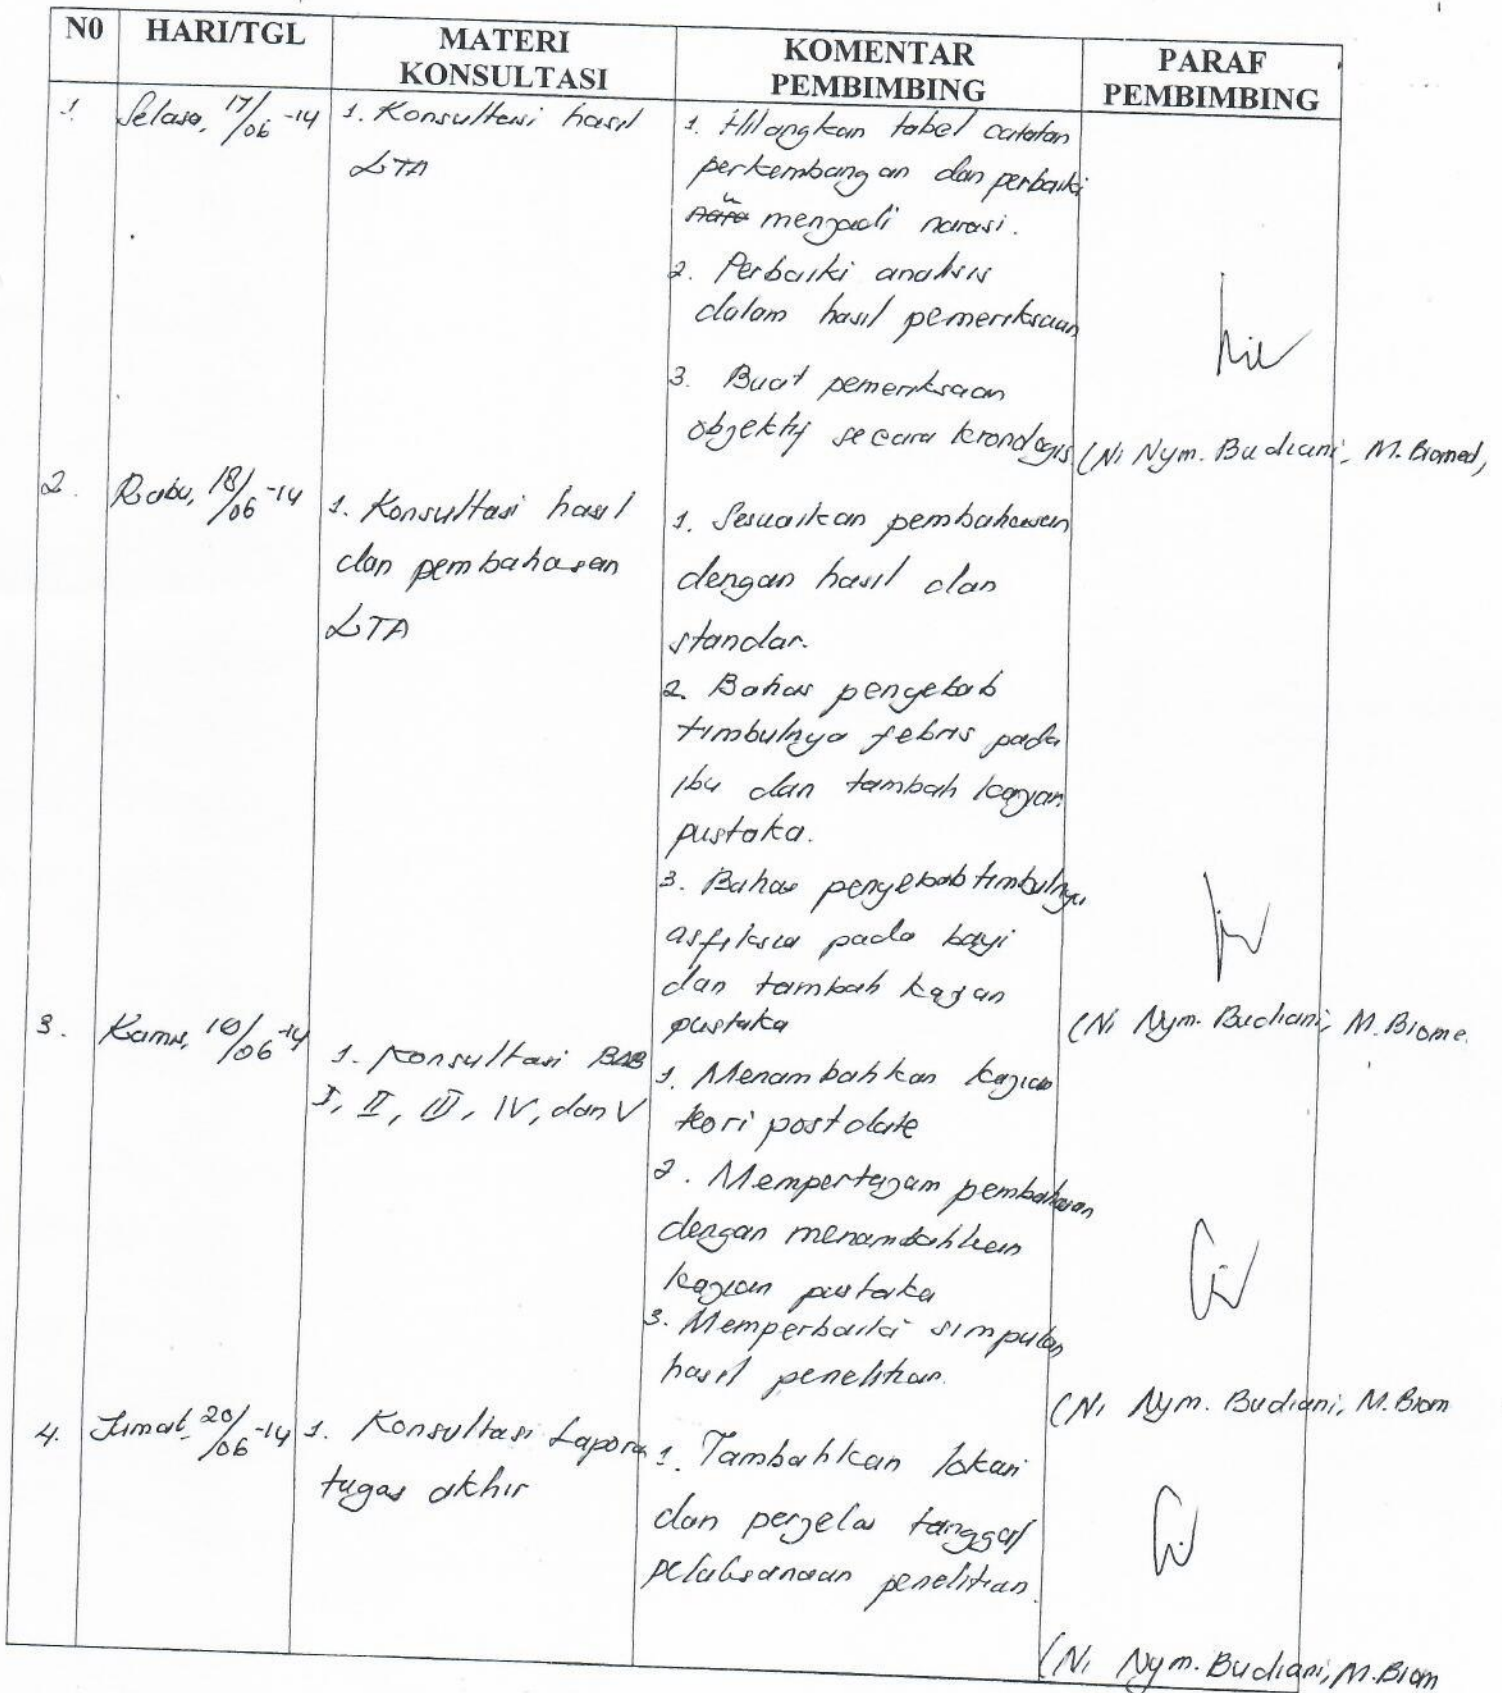 N0 HARI/TGL MATERI KONSULTASI KOMENTAR PEMBIMBING PARAF PEMBIMBING
1. Selasa, 17/06 -14
1. Konsultasi hasil
LTA
1. Hilangkan tabel catatan
perkembangan dan perbaiki
menjadi narasi.
2. Perbaiki analisis
dalam hasil pemeriksaan
3. Buat pemeriksaan
objektif secara kronologis
(Ni Nym. Budiani, M.Biomed,
2. Rabu, 18/06 -14
1. Konsultasi hasil
dan pembahasan
LTA
1. Sesuaikan pembahasan
dengan hasil dan
standar.
2. Bahas penyebab
timbulnya febris pada
ibu dan tambah kajian
pustaka.
3. Bahas penyebab timbulnya
asfiksia pada bayi
dan tambah kajian
pustaka
(Ni Nym. Budiani, M.Biome
3. Kamis, 19/06 -14
1. Konsultasi BAB
I, II, III, IV, dan V
1. Menambahkan kajian
teori postdate
2. Mempertajam pembahasan
dengan menambahkan
kajian pustaka
3. Memperbaiki simpulan
hasil penelitian.
(Ni Nym. Budiani, M.Biom
4. Jumat, 20/06 -14
1. Konsultasi Laporan
tugas akhir
1. Tambahkan lokasi
dan perjelas tanggal
pelaksanaan penelitian.
(Ni Nym. Budiani, M.Biom